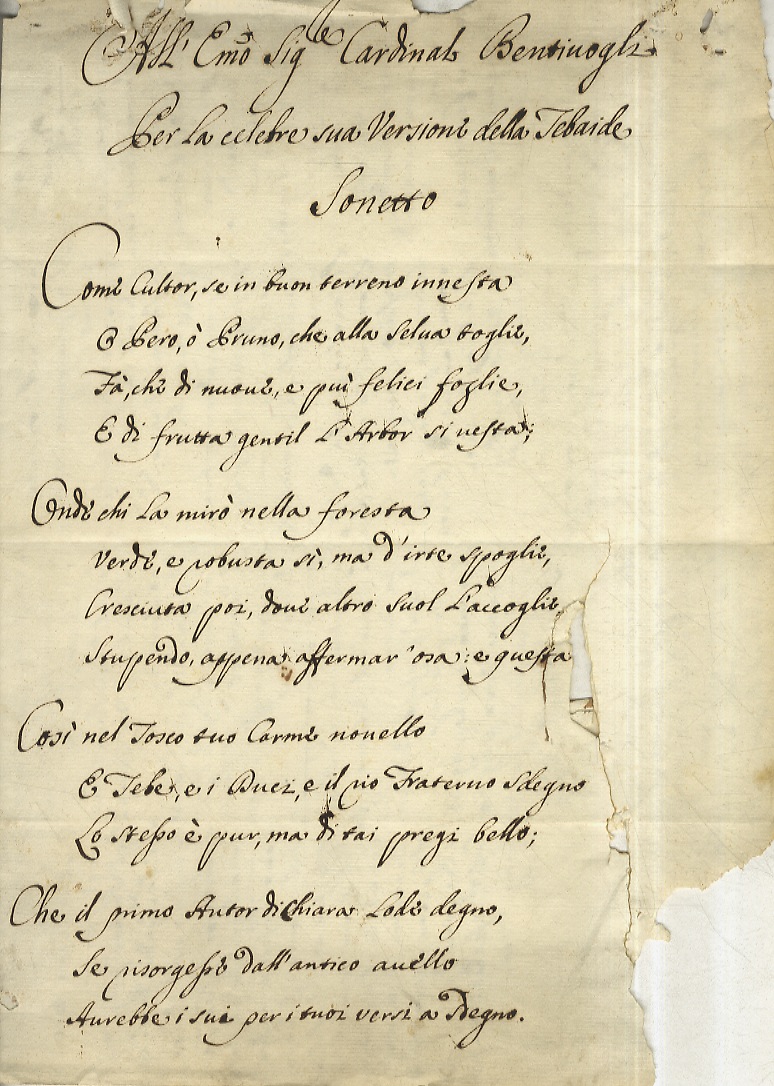 All' Emo Sig.e Cardinal Bentiuogli
Per la celebre sua Versione della Tebaide
Sonetto
Come Cultor, se in buon terreno innesta
O Pero, ò Pruno, che alla Selua toglie,
Fà, che di nuoue, e più felici foglie,
E di frutta gentil l'Arbor si uesta;
Onde chi la mirò nella foresta
Verde, e robusta sì, ma d'irte spoglie,
Cresciuta poi, doue altro suol l'accoglie
Stupendo, appena affermar osa: e questa
Così nel Tosco tuo Carme nouello
E Tebe, e i Duci, e il rio Fraterno Sdegno
Lo stesso è pur, ma di tai pregi bello;
Che il primo Autor di chiara Lode degno,
Se risorgesse dall'antico auello
Aurebbe i sui per i tuoi versi a Sdegno.